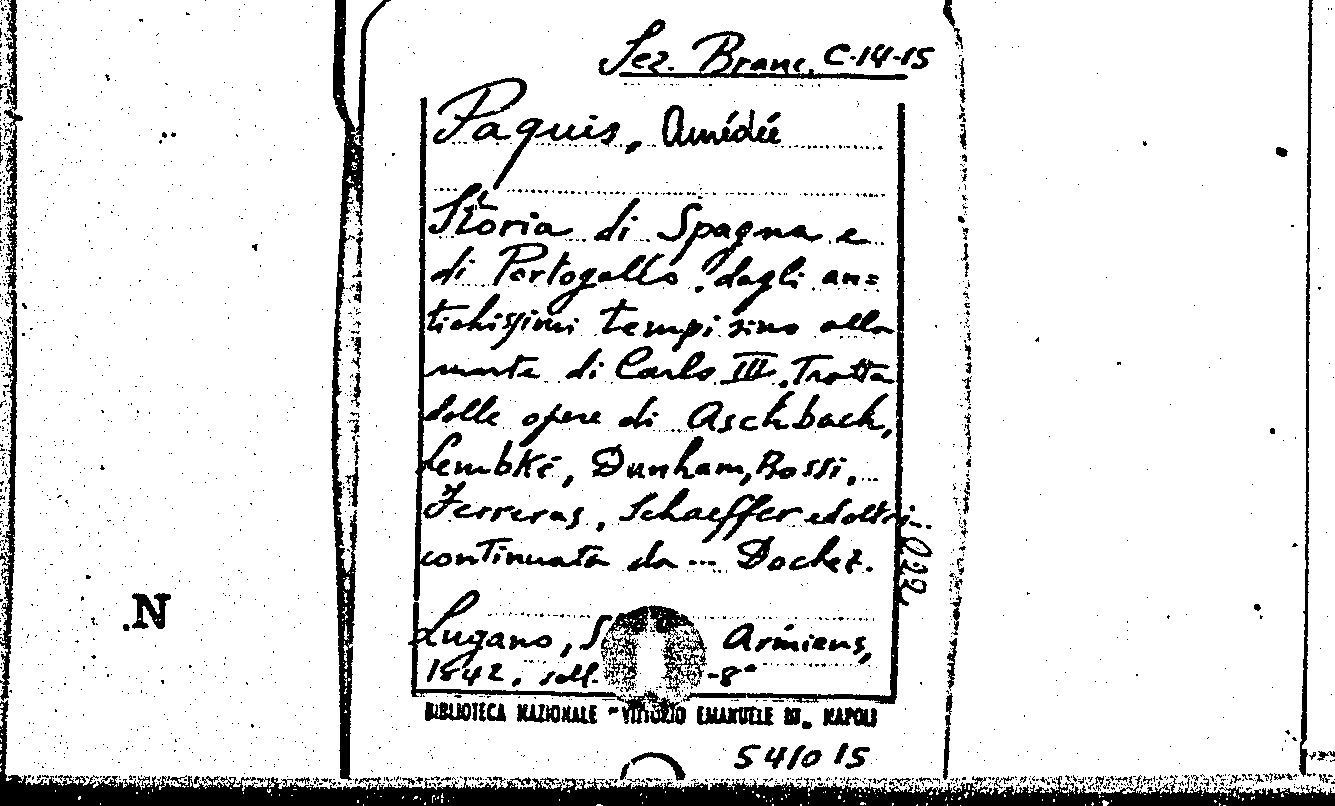 Sez. Branc. C-14-15
Paquis, Amédée
Storia di Spagna e
di Portogallo dagli an=
tichissimi tempi sino alla
morte di Carlo III. Tratta
dalle opere di Aschbach,
Lembké, Dunham, Rossi,
Ferreras, Schaeffer ed altri
continuata da ... Dochez.
Lugano, Armiens,
1842. -8°
BIBLIOTECA NAZIONALE "VITTORIO EMANUELE III" NAPOLI
541015
.N